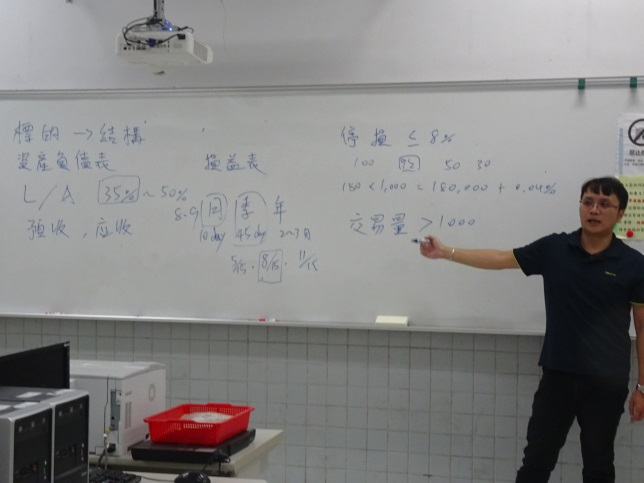 標的 → 結構
資產負債表
L/A 35% ~ 50%
預收，应收
損益表
8-9 回 季 年
10 day 45 day 2~3月
5/15 . 8/15 . 11/15
停損 ≤ 8%
100 50 30
180 × 1,000 = 180,000 + 0.04%
交易量 > 1000